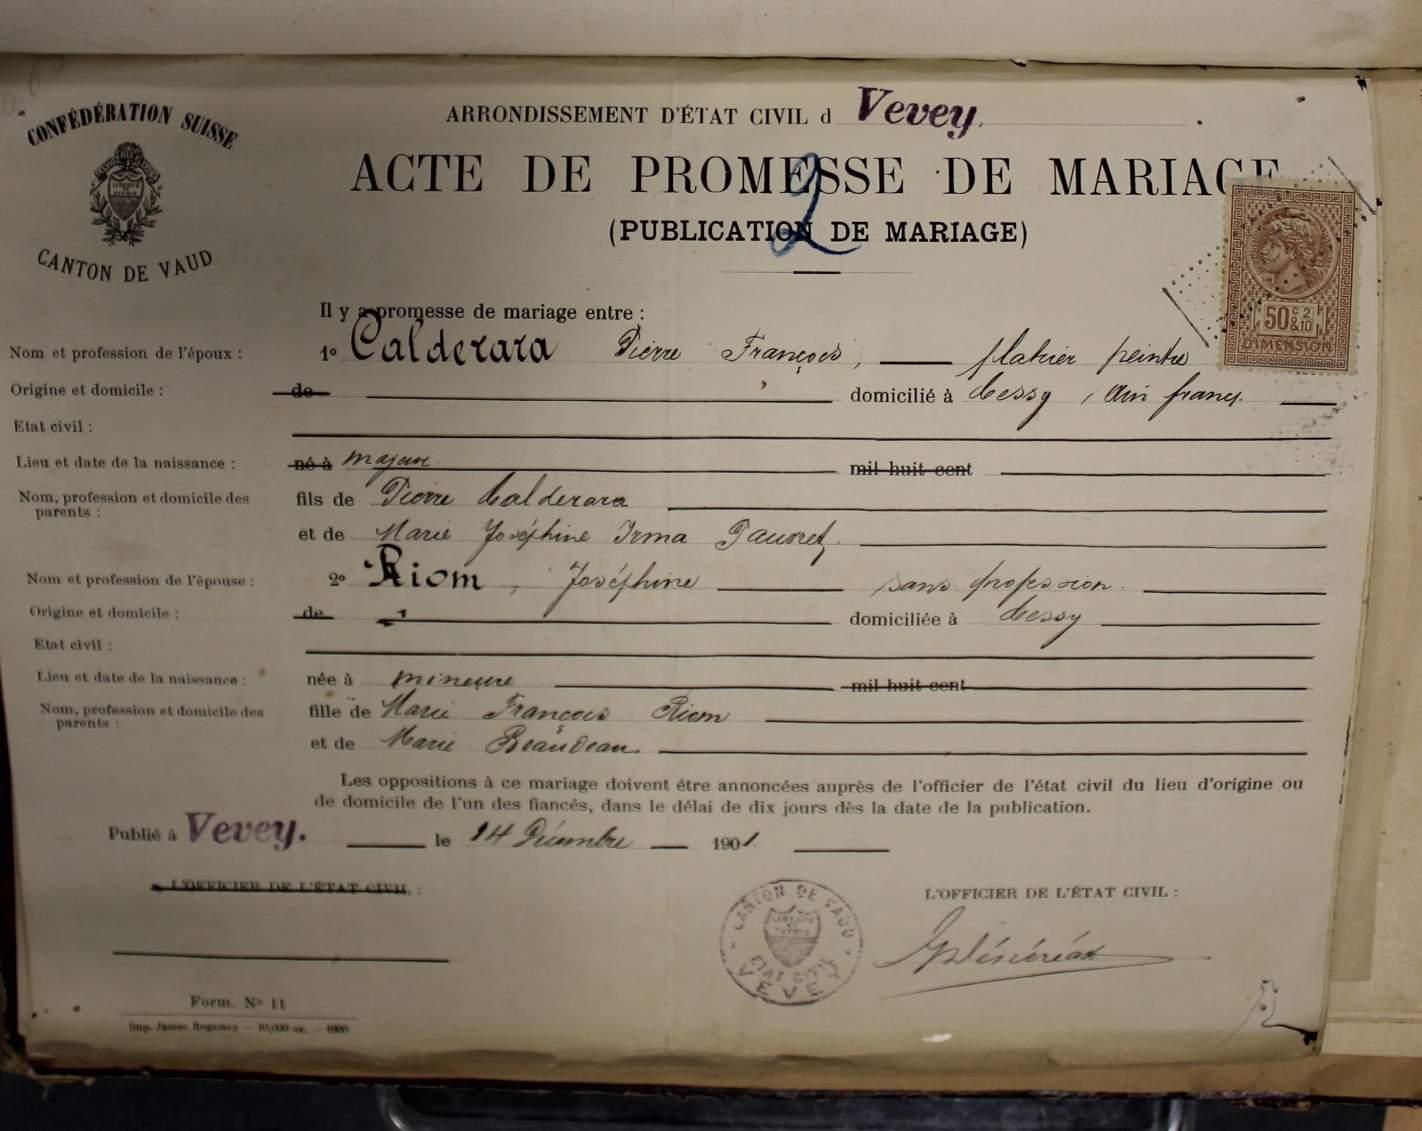 CONFÉDÉRATION SUISSE
LIBERTÉ ET PATRIE
CANTON DE VAUD
ARRONDISSEMENT D'ÉTAT CIVIL d Vevey.
ACTE DE PROMESSE DE MARIAGE
2
(PUBLICATION DE MARIAGE)
50 c 2 & 10
DIMENSION
Il y a promesse de mariage entre :
Nom et profession de l'époux : 1º Calderara Pierre François, plâtrier peintre
Origine et domicile : de domicilié à Cessy, Ain
Etat civil :
Lieu et date de la naissance : né à majeur. mil huit cent
Nom, profession et domicile des parents : fils de Pierre Calderara
et de Marie Joséphine Irma
Nom et profession de l'épouse : 2º Riom, Joséphine sans profession.
Origine et domicile : de domiciliée à Cessy
Etat civil :
Lieu et date de la naissance : née à mineure mil huit cent
Nom, profession et domicile des parents : fille de Marie François Riom
et de Marie Beaudeau.
Les oppositions à ce mariage doivent être annoncées auprès de l'officier de l'état civil du lieu d'origine ou
de domicile de l'un des fiancés, dans le délai de dix jours dès la date de la publication.
Publié à Vevey. le 14 Décembre 1901.
L'OFFICIER DE L'ÉTAT CIVIL :
L'OFFICIER DE L'ÉTAT CIVIL :
CANTON DE VAUD
LIBERTÉ ET PATRIE
ETAT CIVIL
VEVEY
Form. Nº 11
Imp. James Regamey — 10,000 ex. — 1900